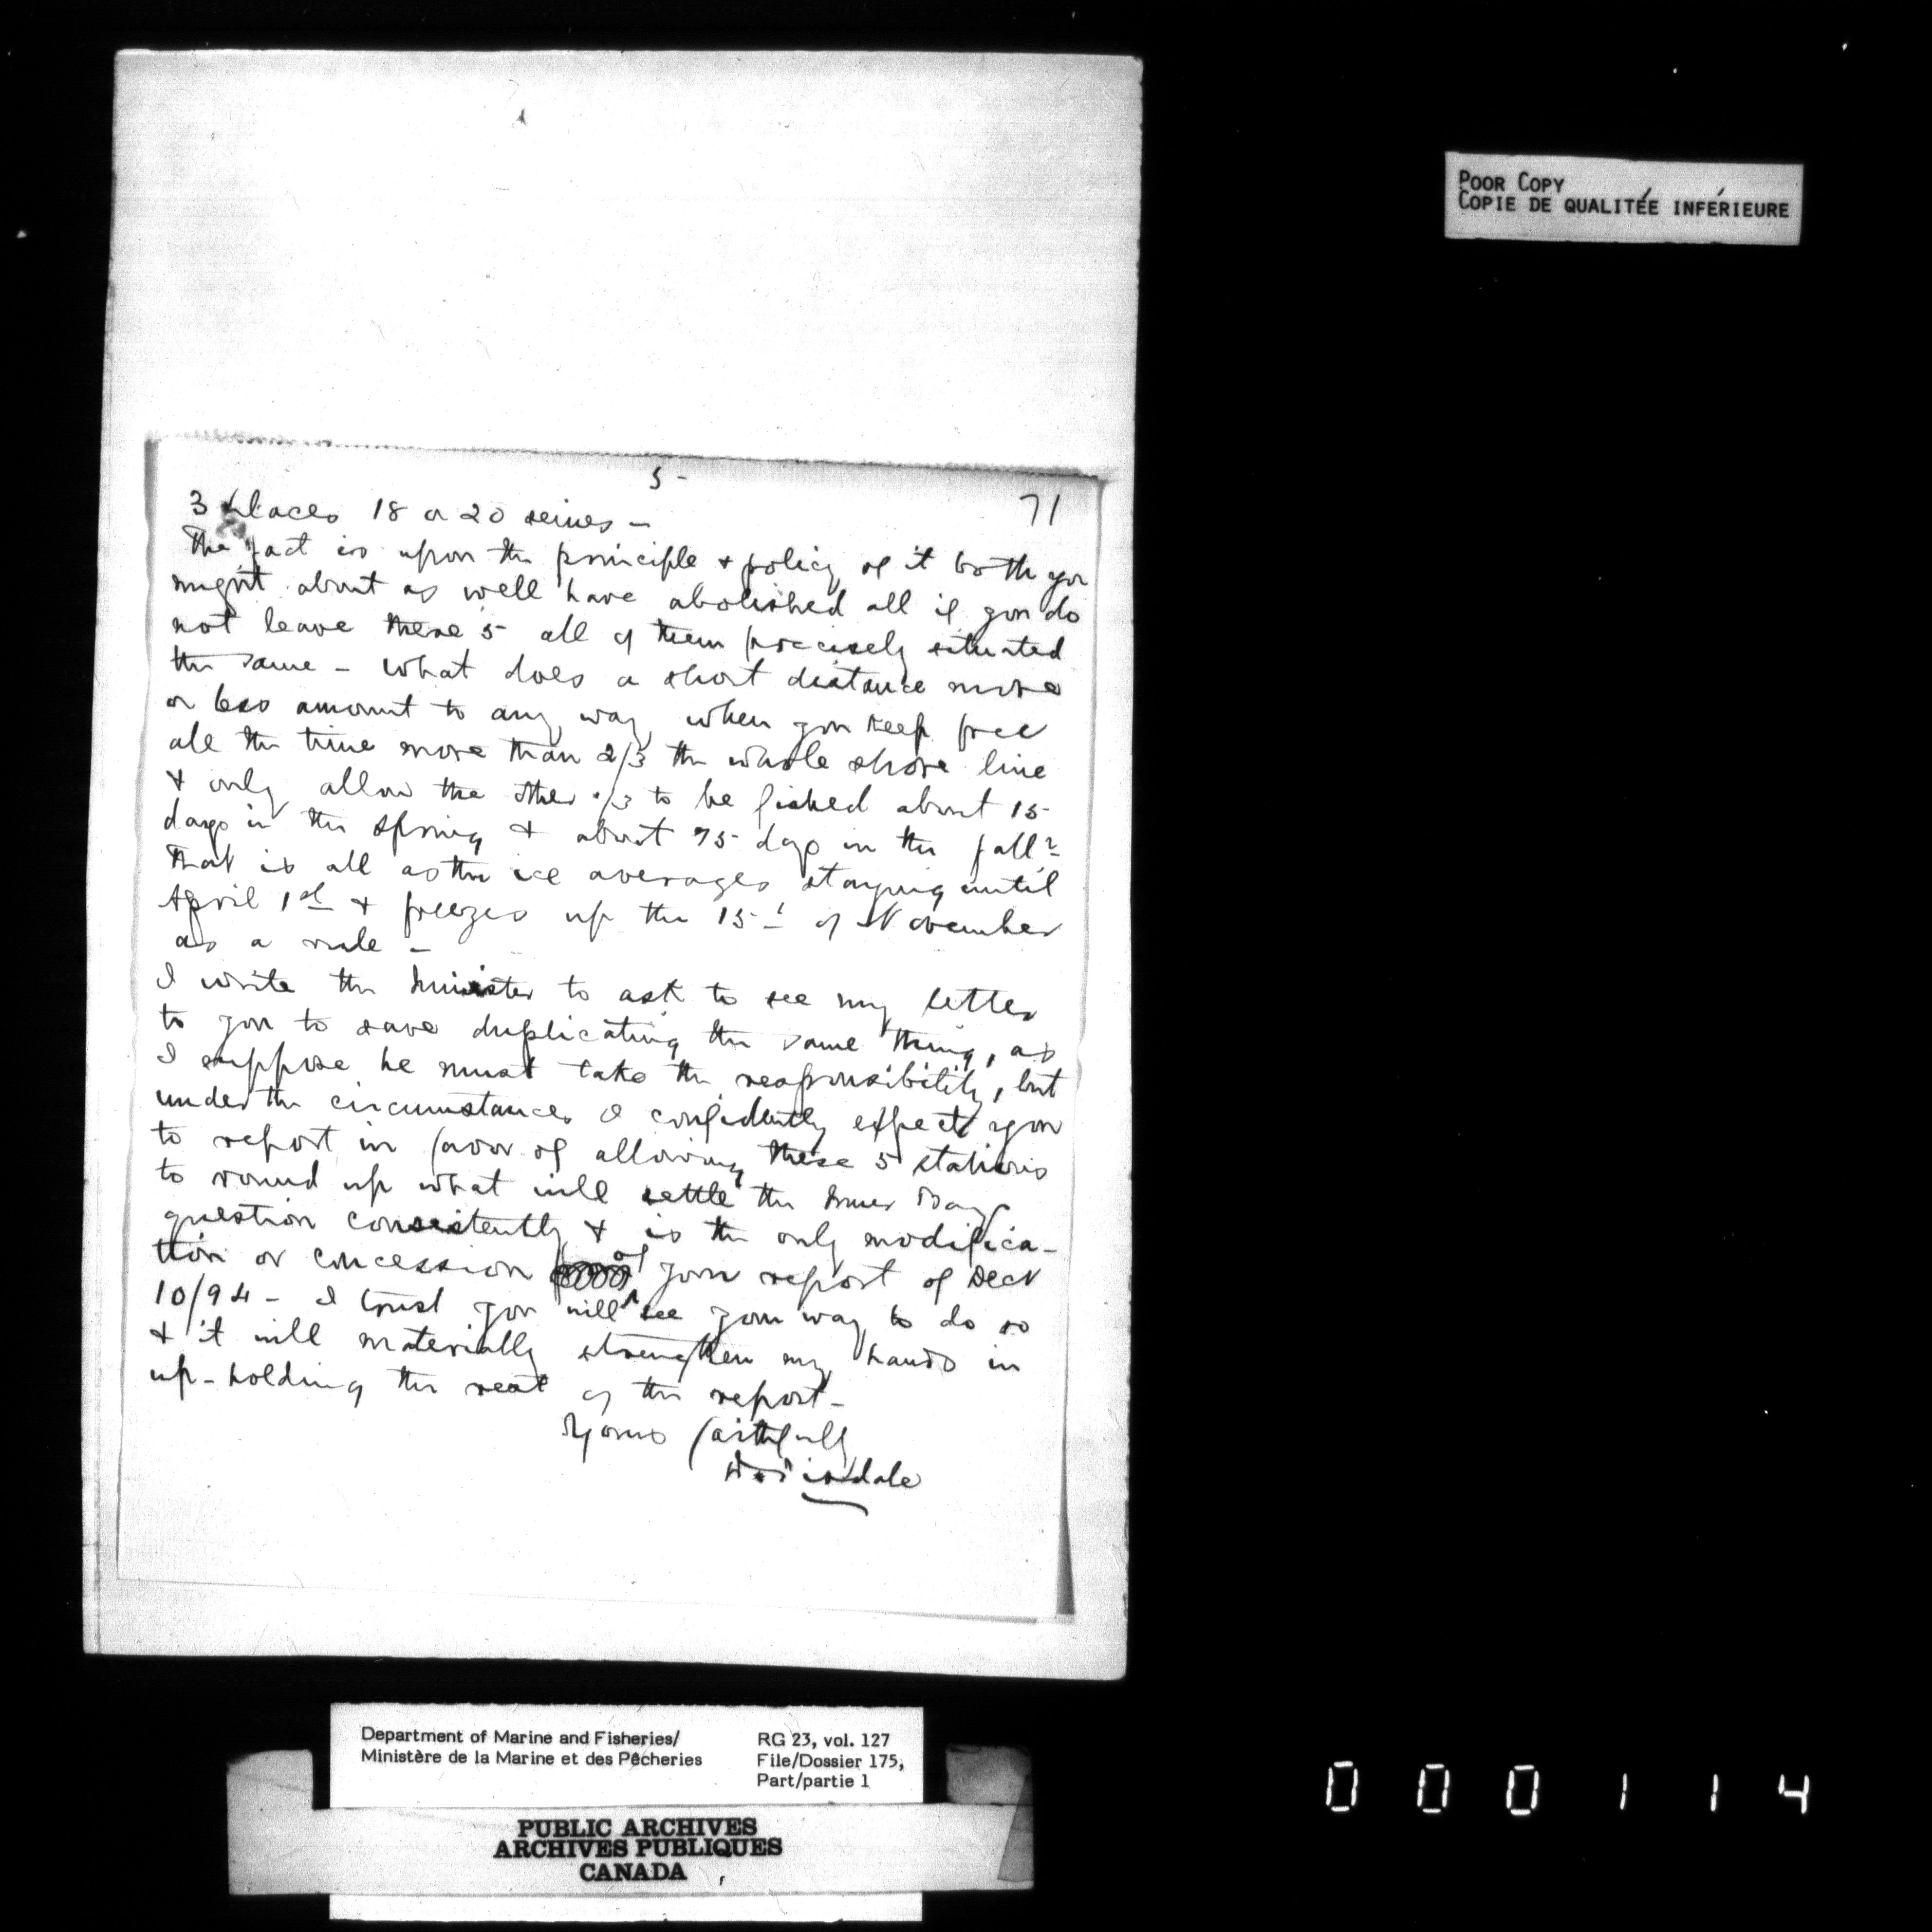 POOR COPY
COPIE DE QUALITÉE INFÉRIEURE
5-
71
3 places 18 or 20 seines –
The fact is upon the principle & policy of it both you
might about as well have abolished all if you do
not leave these 5 all of them precisely situated
the same – What does a short distance more
or less amount to any way when you keep free
all the time more than 2/3 the whole shore line
& only allow the other 1/3 to be fished about 15
days in the Spring & about 75 days in the fall?
That is all as the ice averages staying until
April 1st & freezes up the 15t of November
as a rule –
I write the Minister to ask to see my letter
to you to save duplicating the same thing, as
I suppose he must take the responsibility, but
under the circumstances I confidently expect you
to report in favor of allowing these 5 stations
to round up what will settle the Inner Bay
question consistently & is the only modifica-
tion or concession of your report of Dect
10/94 – I trust you will see your way to do so
& it will materially strengthen my hands in
up-holding the rest of the report –
Yours faithfully
Department of Marine and Fisheries/
Ministère de la Marine et des Pêcheries
RG 23, vol. 127
File/Dossier 175,
Part/partie 1
PUBLIC ARCHIVES
ARCHIVES PUBLIQUES
CANADA
000114